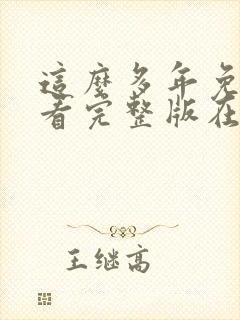 這麼多年免
看完整版在
王继高